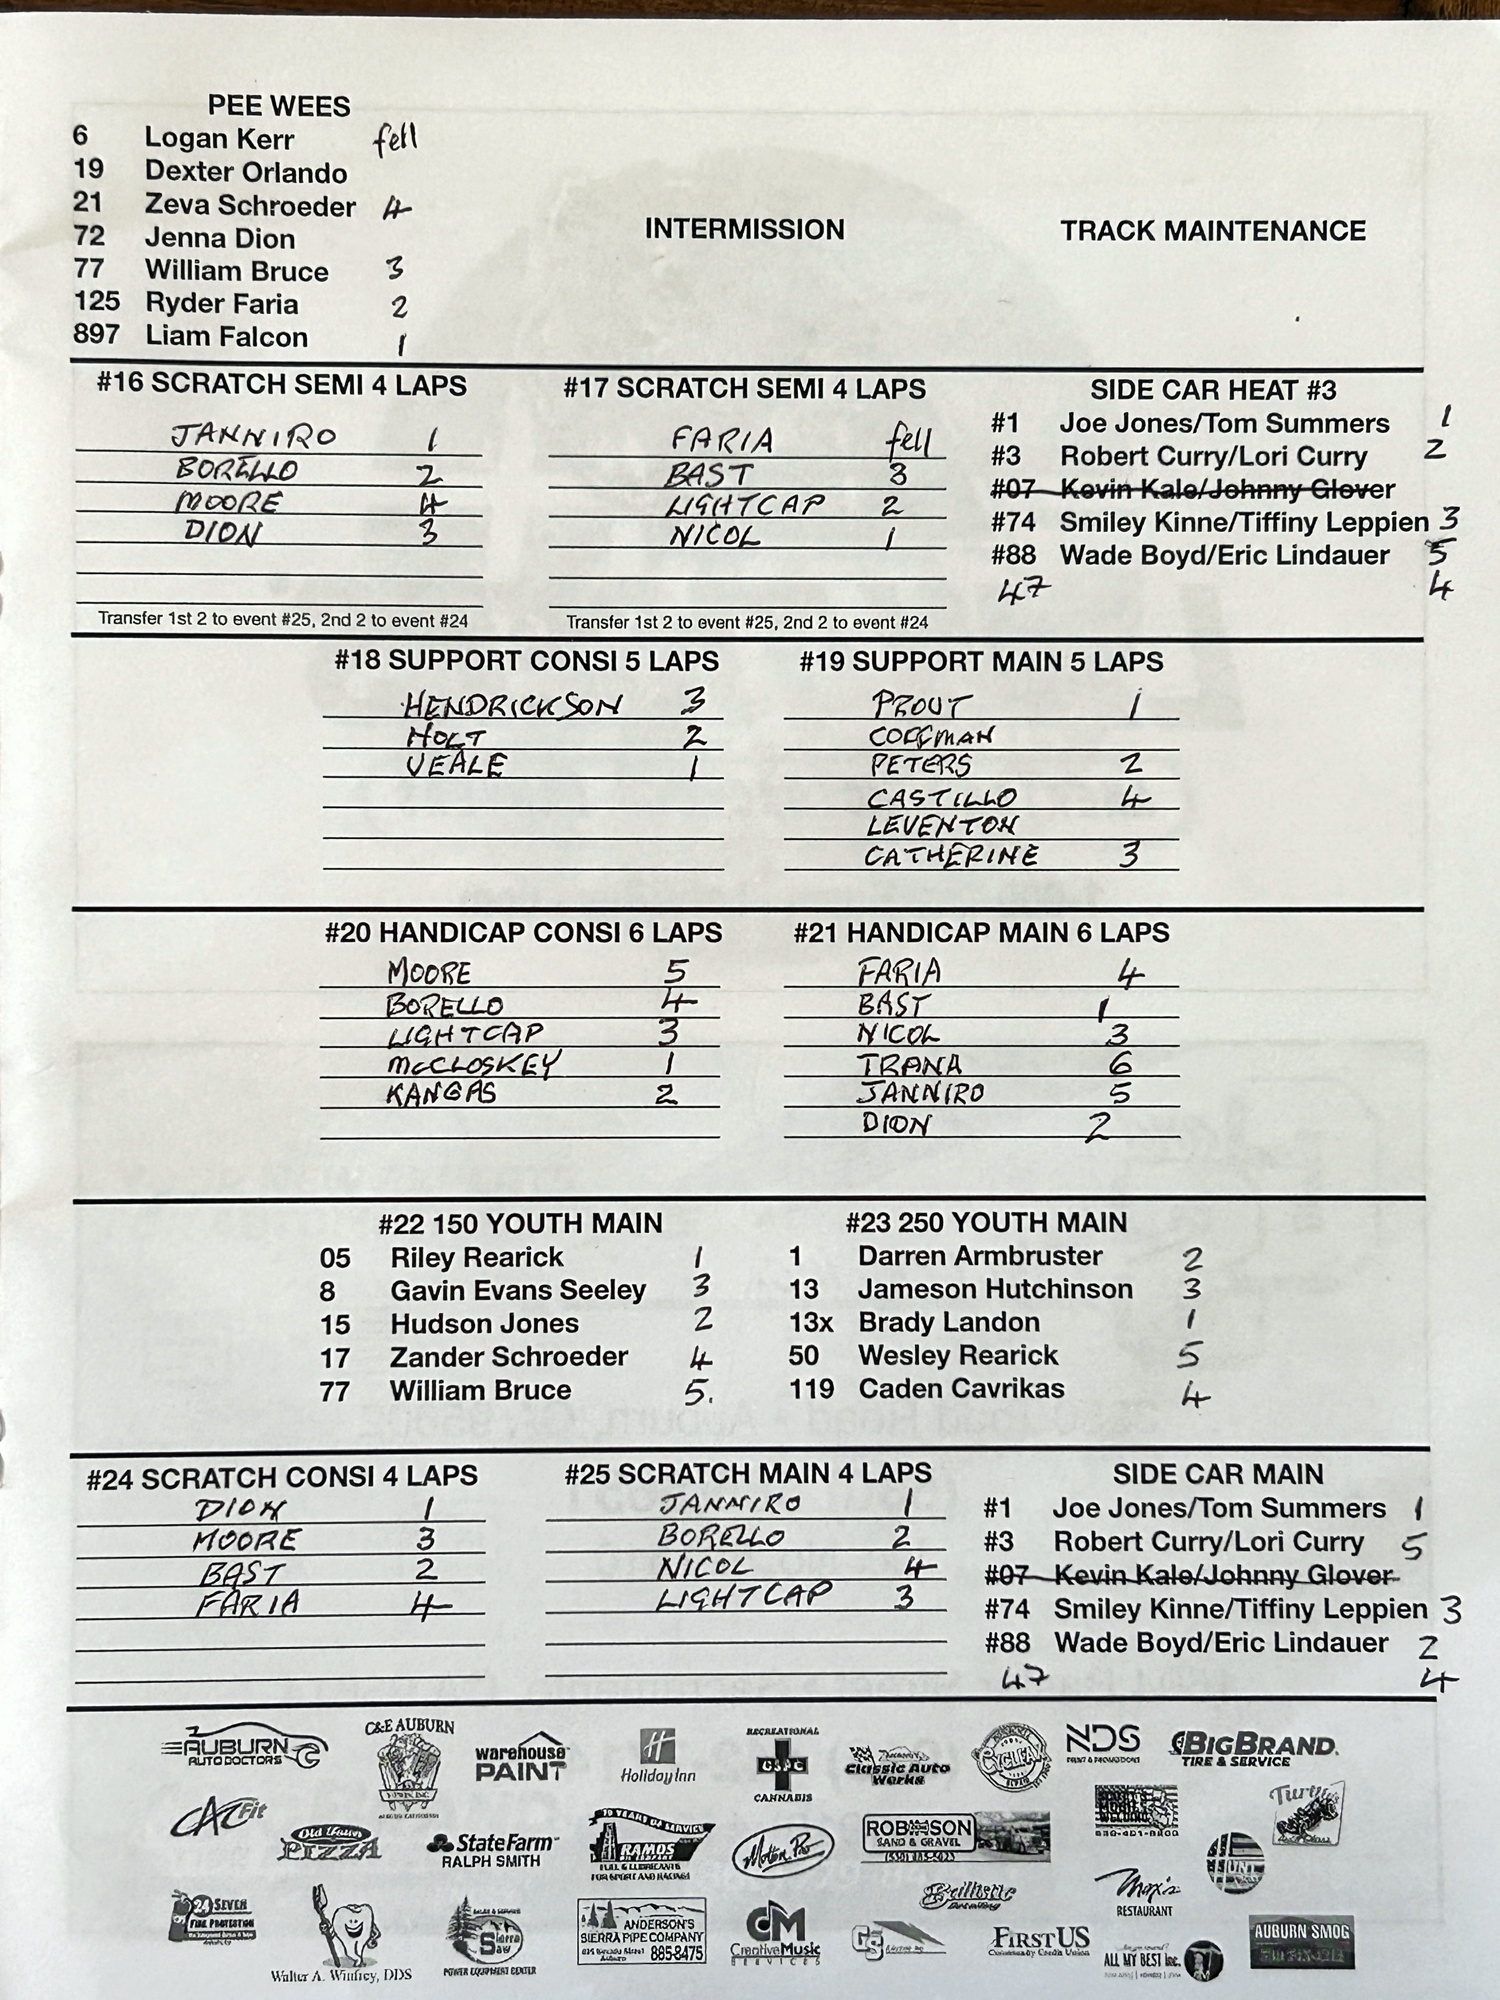 PEE WEES
6 Logan Kerr fell
19 Dexter Orlando
21 Zeva Schroeder 4
72 Jenna Dion
77 William Bruce 3
125 Ryder Faria 2
897 Liam Falcon 1
INTERMISSION
TRACK MAINTENANCE
#16 SCRATCH SEMI 4 LAPS
JANNIRO 1
BORELLO 2
MOORE 4
DION 3
Transfer 1st 2 to event #25, 2nd 2 to event #24
#17 SCRATCH SEMI 4 LAPS
FARIA fell
BAST 3
LIGHTCAP 2
NICOL 1
Transfer 1st 2 to event #25, 2nd 2 to event #24
SIDE CAR HEAT #3
#1 Joe Jones/Tom Summers 1
#3 Robert Curry/Lori Curry 2
#07 Kevin Kale/Johnny Glover
#74 Smiley Kinne/Tiffiny Leppien 3
#88 Wade Boyd/Eric Lindauer 5
47 4
#18 SUPPORT CONSI 5 LAPS
HENDRICKSON 3
HOLT 2
VEALE 1
#19 SUPPORT MAIN 5 LAPS
PROUT 1
COFFMAN
PETERS 2
CASTILLO 4
LEVENTON
CATHERINE 3
#20 HANDICAP CONSI 6 LAPS
MOORE 5
BORELLO 4
LIGHTCAP 3
McCLOSKEY 1
KANGAS 2
#21 HANDICAP MAIN 6 LAPS
FARIA 4
BAST 1
NICOL 3
TRANA 6
JANNIRO 5
DION 2
#22 150 YOUTH MAIN
05 Riley Rearick 1
8 Gavin Evans Seeley 3
15 Hudson Jones 2
17 Zander Schroeder 4
77 William Bruce 5.
#23 250 YOUTH MAIN
1 Darren Armbruster 2
13 Jameson Hutchinson 3
13x Brady Landon 1
50 Wesley Rearick 5
119 Caden Cavrikas 4
#24 SCRATCH CONSI 4 LAPS
DION 1
MOORE 3
BAST 2
FARIA 4
#25 SCRATCH MAIN 4 LAPS
JANNIRO 1
BORELLO 2
NICOL 4
LIGHTCAP 3
SIDE CAR MAIN
#1 Joe Jones/Tom Summers 1
#3 Robert Curry/Lori Curry 5
#07 Kevin Kale/Johnny Glover
#74 Smiley Kinne/Tiffiny Leppien 3
#88 Wade Boyd/Eric Lindauer 2
47 4
AUBURN
AUTO DOCTORS
C&E AUBURN
warehouse
PAINT
Holiday Inn
RECREATIONAL
CSPC
CANNABIS
Classic Auto
Works
NDS
PRINT & PROMOTIONS
BIGBRAND
TIRE & SERVICE
CAL Fit
Old Town
PIZZA
StateFarm
RALPH SMITH
70 YEARS OF SERVICE
RAMOS
FUEL & LUBRICANTS
FOR SPORT AND RACING
Motion Pro
ROBINSON
SAND & GRAVEL
(530) 885-5023
HUNT
24 SEVEN
FIRE PROTECTION
Walter A. Winfrey, DDS
SALES & SERVICE
Sierra
Saw
POWER EQUIPMENT CENTER
ANDERSON'S
SIERRA PIPE COMPANY
885-8475
CM
Creative Music
SERVICES
FIRST US
Community Credit Union
Max's
RESTAURANT
ALL MY BEST Inc.
AUBURN SMOG